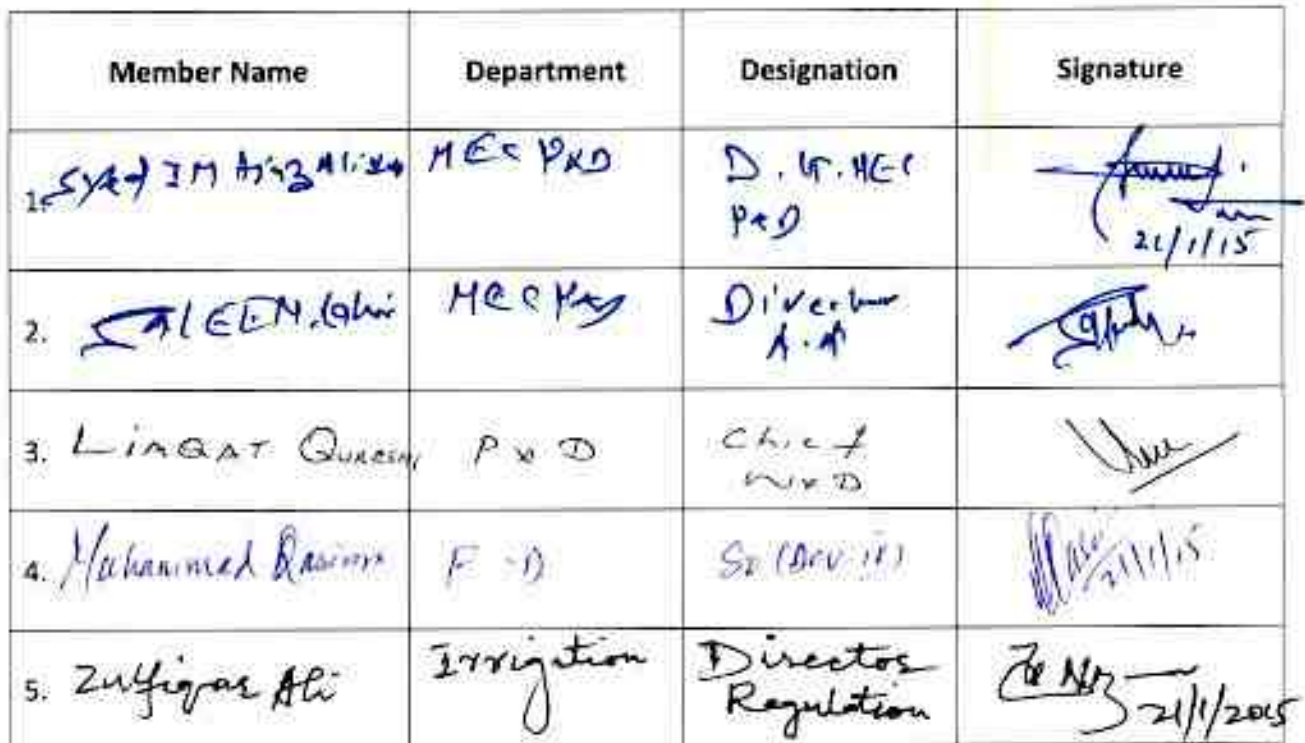 Member Name Department Designation Signature
1. Syed IM Ali MEC P&D D.G. MEC
P&D
21/1/15
2. SALEEM MEC P&D Director
3. LIAQAT QURESHI P & D Chief
W&D
4. Muhammad Qasim F-D SO (Dev-II) 21/1/15
5. Zulfiqar Ali Irrigation Director
Regulation
21/1/2015